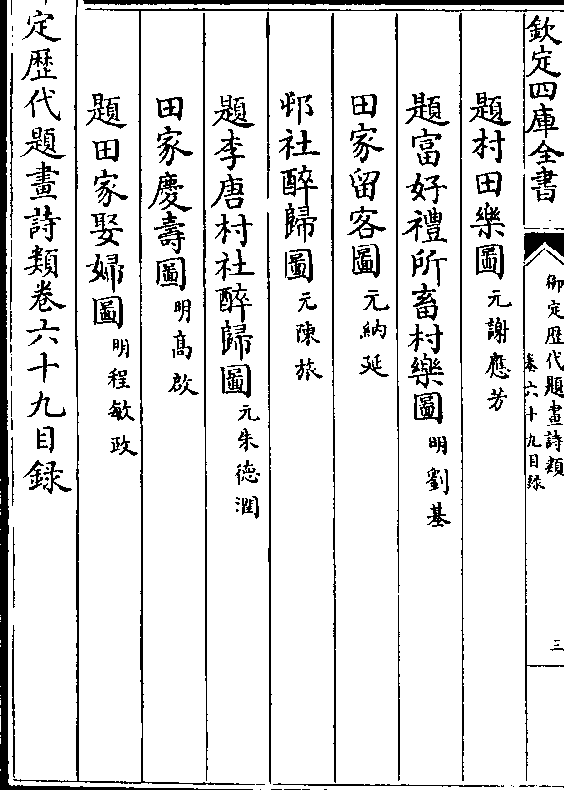 欽定四庫全書
御定歴代題畫詩類
卷六十九目録
三
題村田樂圖元謝應芳
題富好禮所畜村樂圖明劉基
田家留客圖元納延
邨社醉歸圖元陳旅
題李唐村社醉歸圖元朱德潤
田家慶壽圖明高啟
題田家娶婦圖明程敏政
定歴代題畫詩類卷六十九目録